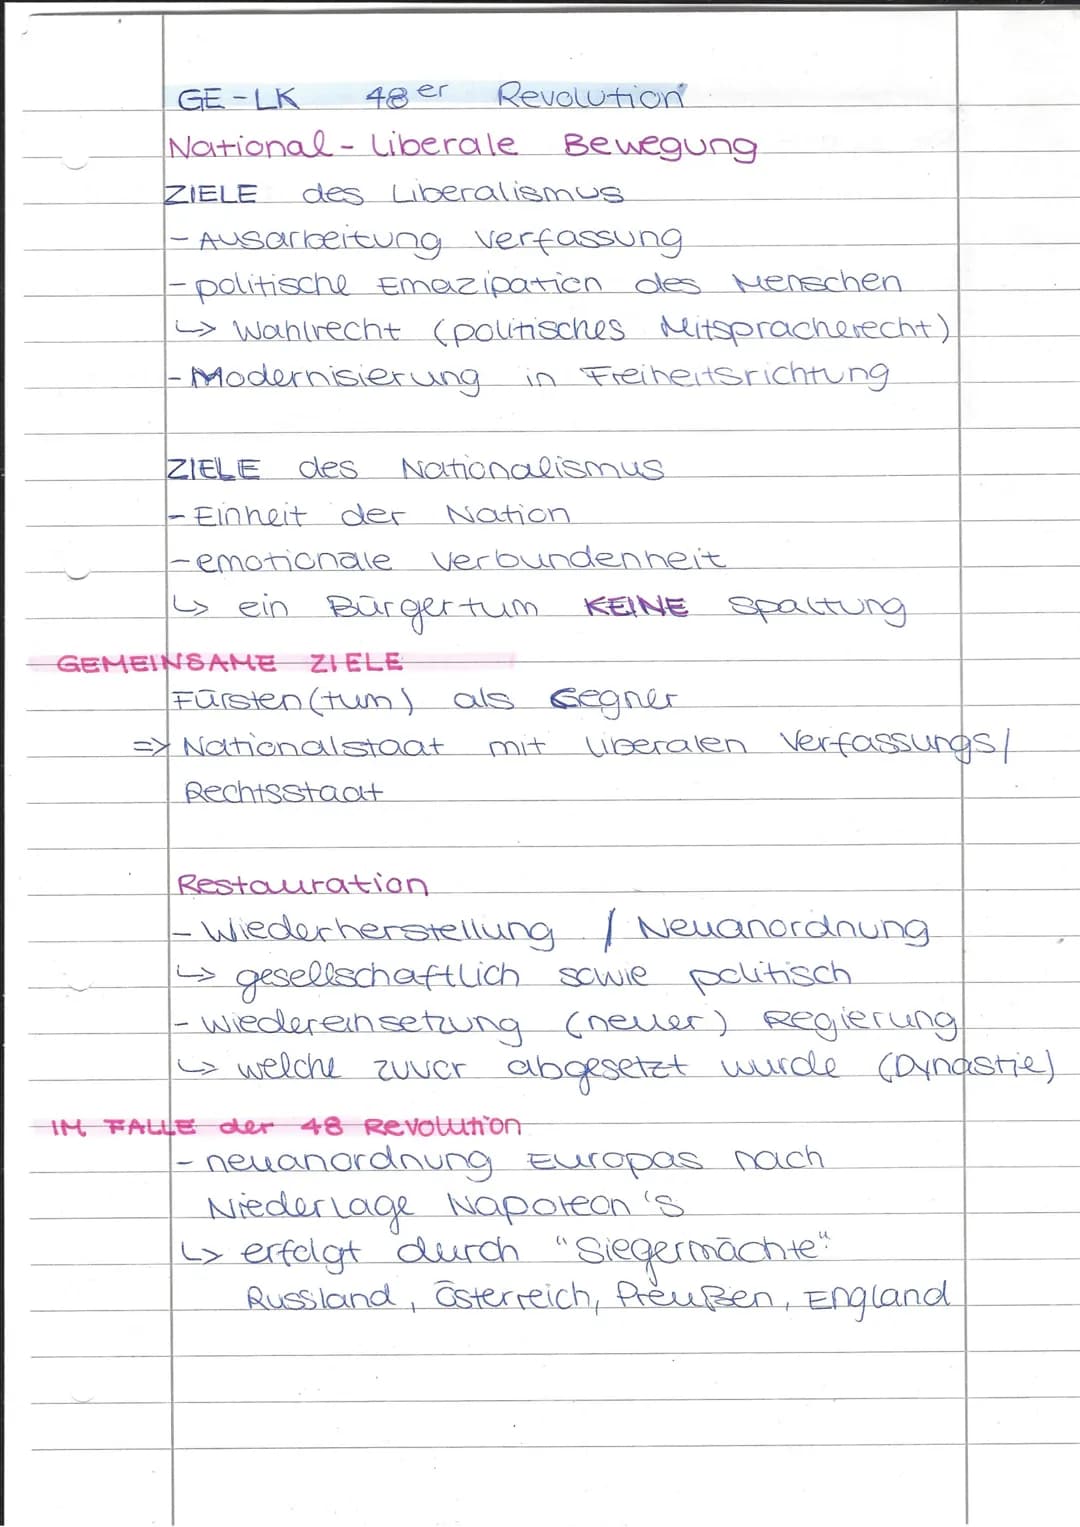 GE-LK 48er Revolution
National-Liberale Bewegung
ZIELE des Liberalismus
- Ausarbeitung Verfassung
- politische Emazipation des Menschen
↳ Wahlrecht (politisches Mitspracherecht)
- Modernisierung in Freiheitsrichtung
ZIELE des Nationalismus
- Einheit der Nation
- emotionale Verbundenheit
↳ ein Bürgertum KEINE Spaltung
GEMEINSAME ZIELE
Fürsten(tum) als Gegner
=> Nationalstaat mit liberalen Verfassungs/
Rechtsstaat
Restauration
- Wiederherstellung / Neuanordnung
↳ gesellschaftlich sowie politisch
- Wiedereinsetzung (neuer) Regierung
↳ welche zuvor abgesetzt wurde (Dynastie)
IM FALLE der 48 Revolution
- neuanordnung Europas nach
Niederlage Napoleon's
↳ erfolgt durch "Siegermächte"
Russland, Österreich, Preußen, England